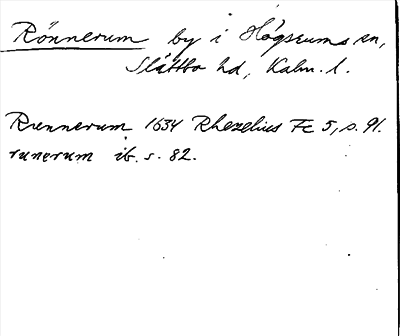 Rönnerum by i Högsrums sn,
Slättbo hd, Kalm. l.
Rænnerum 1634 Rhezelius Fc 5, s. 91.
runerum ib. s. 82.